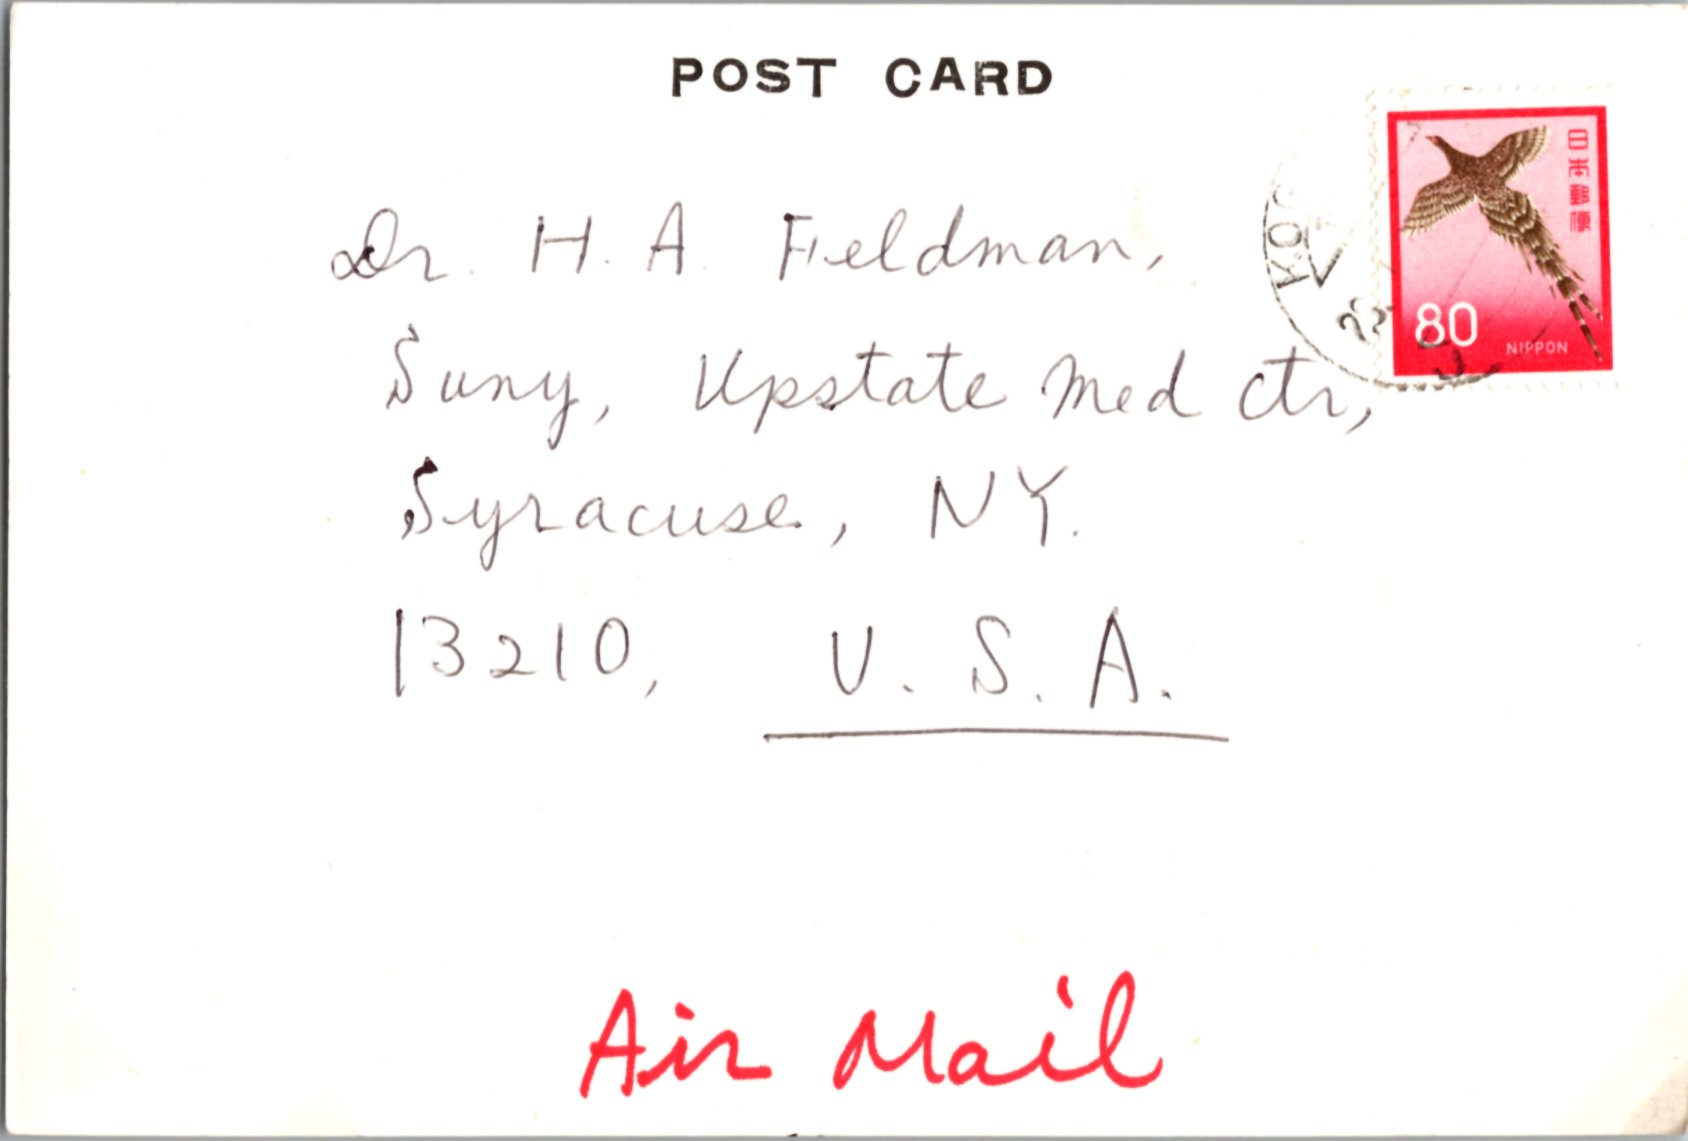 POST CARD
日本郵便
80
NIPPON
Dr. H. A. Feldman,
Suny, Upstate Med Ctr,
Syracuse, NY.
13210, U. S. A.
Air Mail